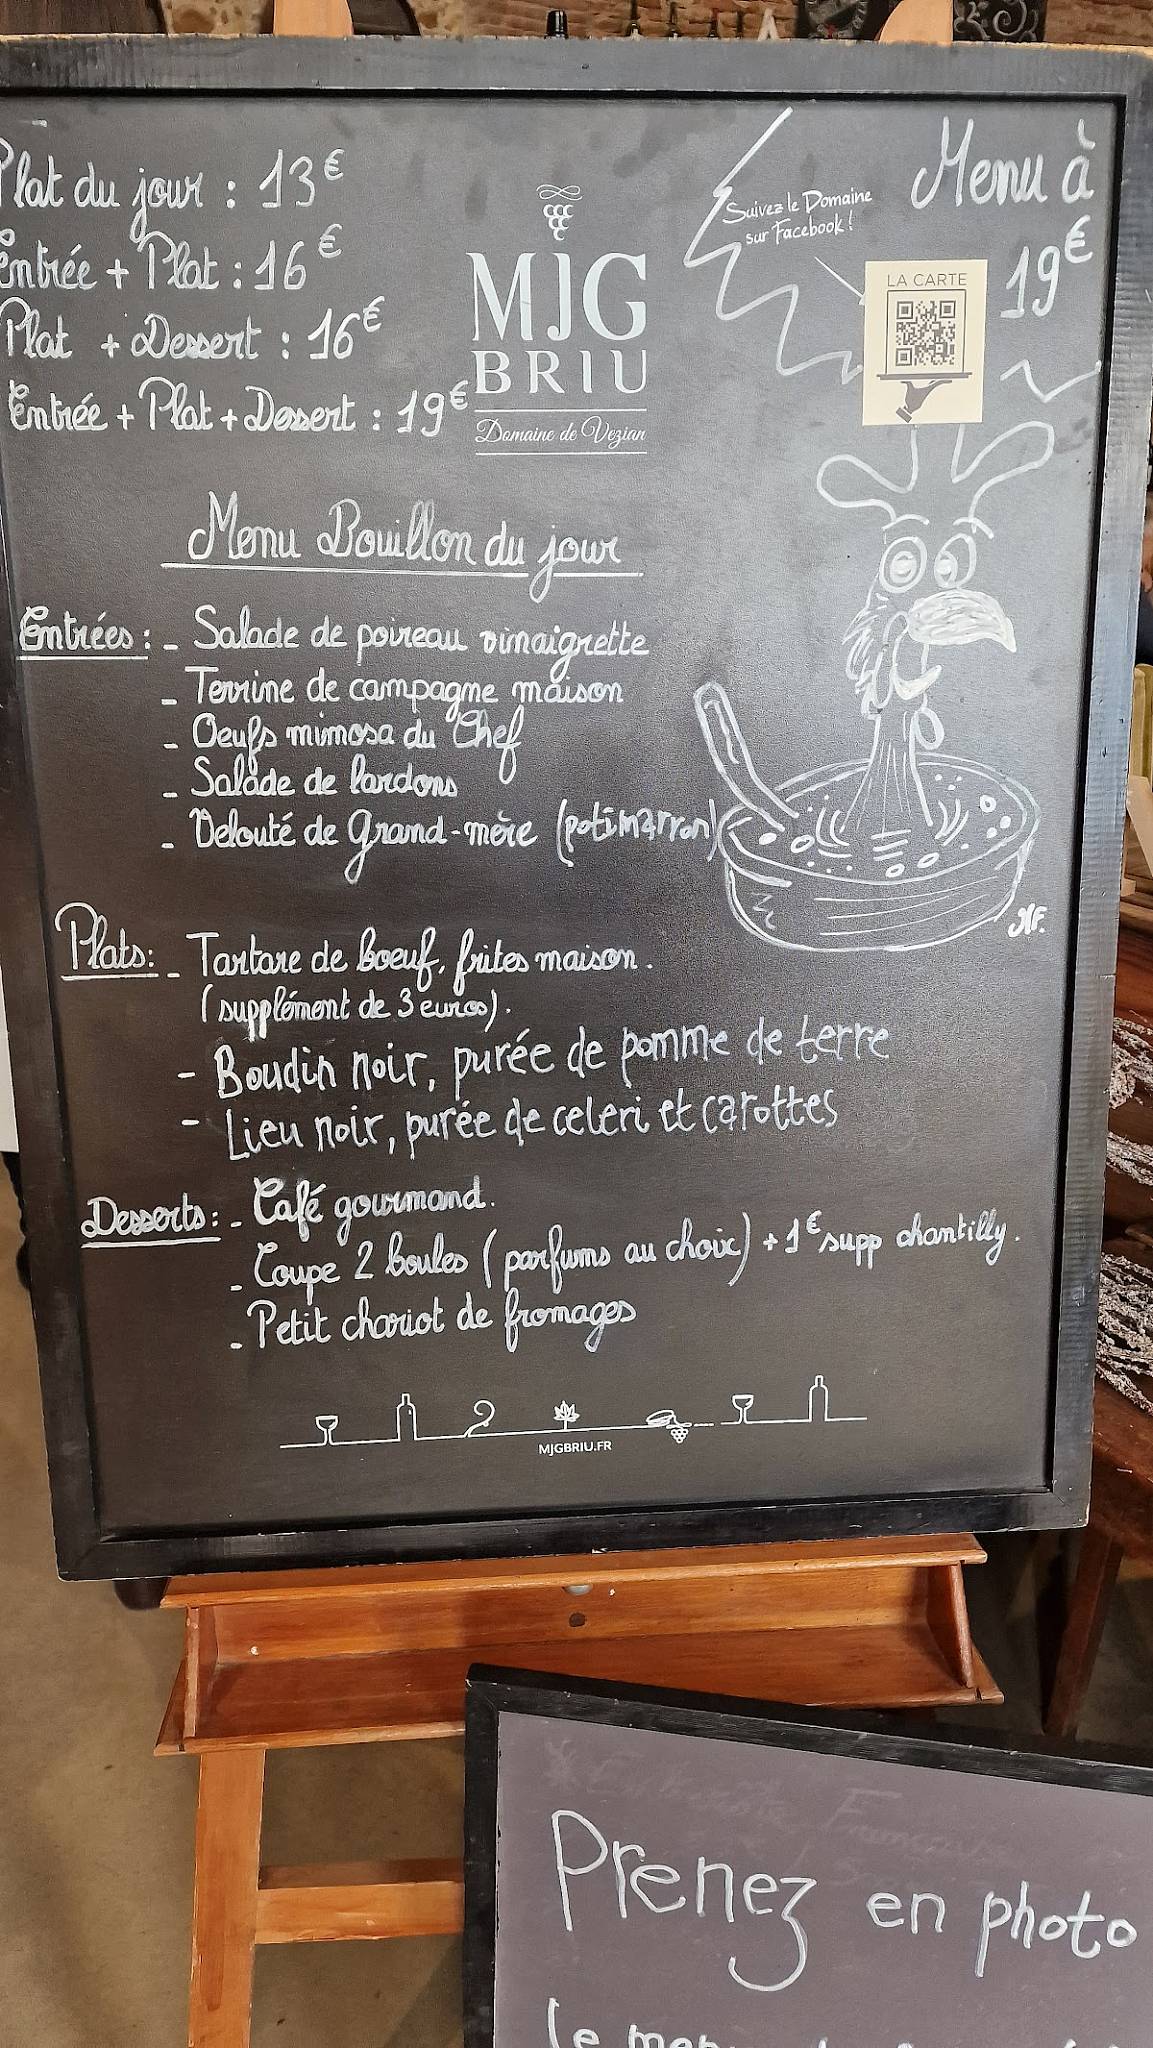 Plat du jour : 13€
Entrée + Plat : 16€
Plat + Dessert : 16€
Entrée + Plat + Dessert : 19€
MJG
BRIU
Domaine de Vezian
Suivez le Domaine
sur Facebook !
Menu à
19€
LA CARTE
Menu Bouillon du jour
Entrées : - Salade de poireau vinaigrette
- Terrine de campagne maison
- Oeufs mimosa du Chef
- Salade de lardons
- Velouté de Grand-mère (potimarron)
NF.
Plats : - Tartare de boeuf, frites maison.
(supplément de 3 euros).
- Boudin noir, purée de pomme de terre
- Lieu noir, purée de celeri et carottes
Desserts : - Café gourmand.
- Coupe 2 boules (parfums au choix) + 1€ supp chantilly.
- Petit chariot de fromages
MJGBRIU.FR
Prenez en photo
le